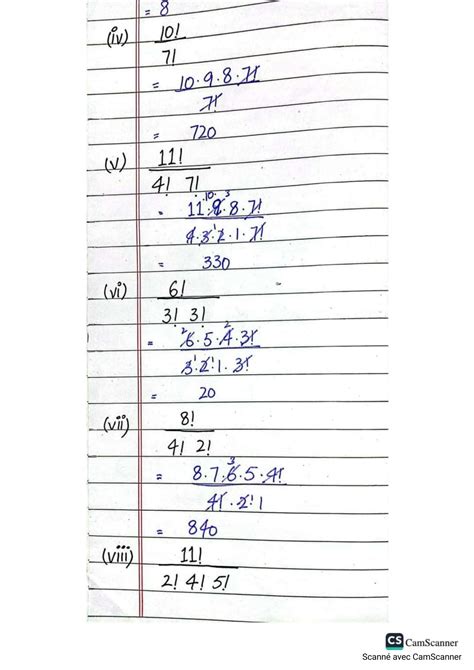 = 8
(iv) 10!
7!
= 10·9·8·7!
7!
= 720
(v) 11!
4! 7!
10 3
= 11·9·8·7!
4·3·2·1·7!
= 330
(vi) 6!
3! 3!
2 2
= 6·5·4·3!
3·2·1·3!
= 20
(vii) 8!
4! 2!
3
= 8·7·6·5·4!
4!·2·1
= 840
(viii) 11!
2! 4! 5!
CS CamScanner
Scanné avec CamScanner